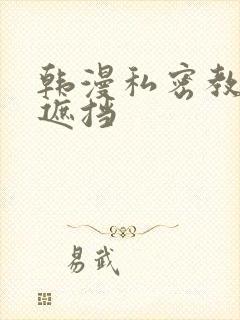 韩漫私密教
遮挡
易武